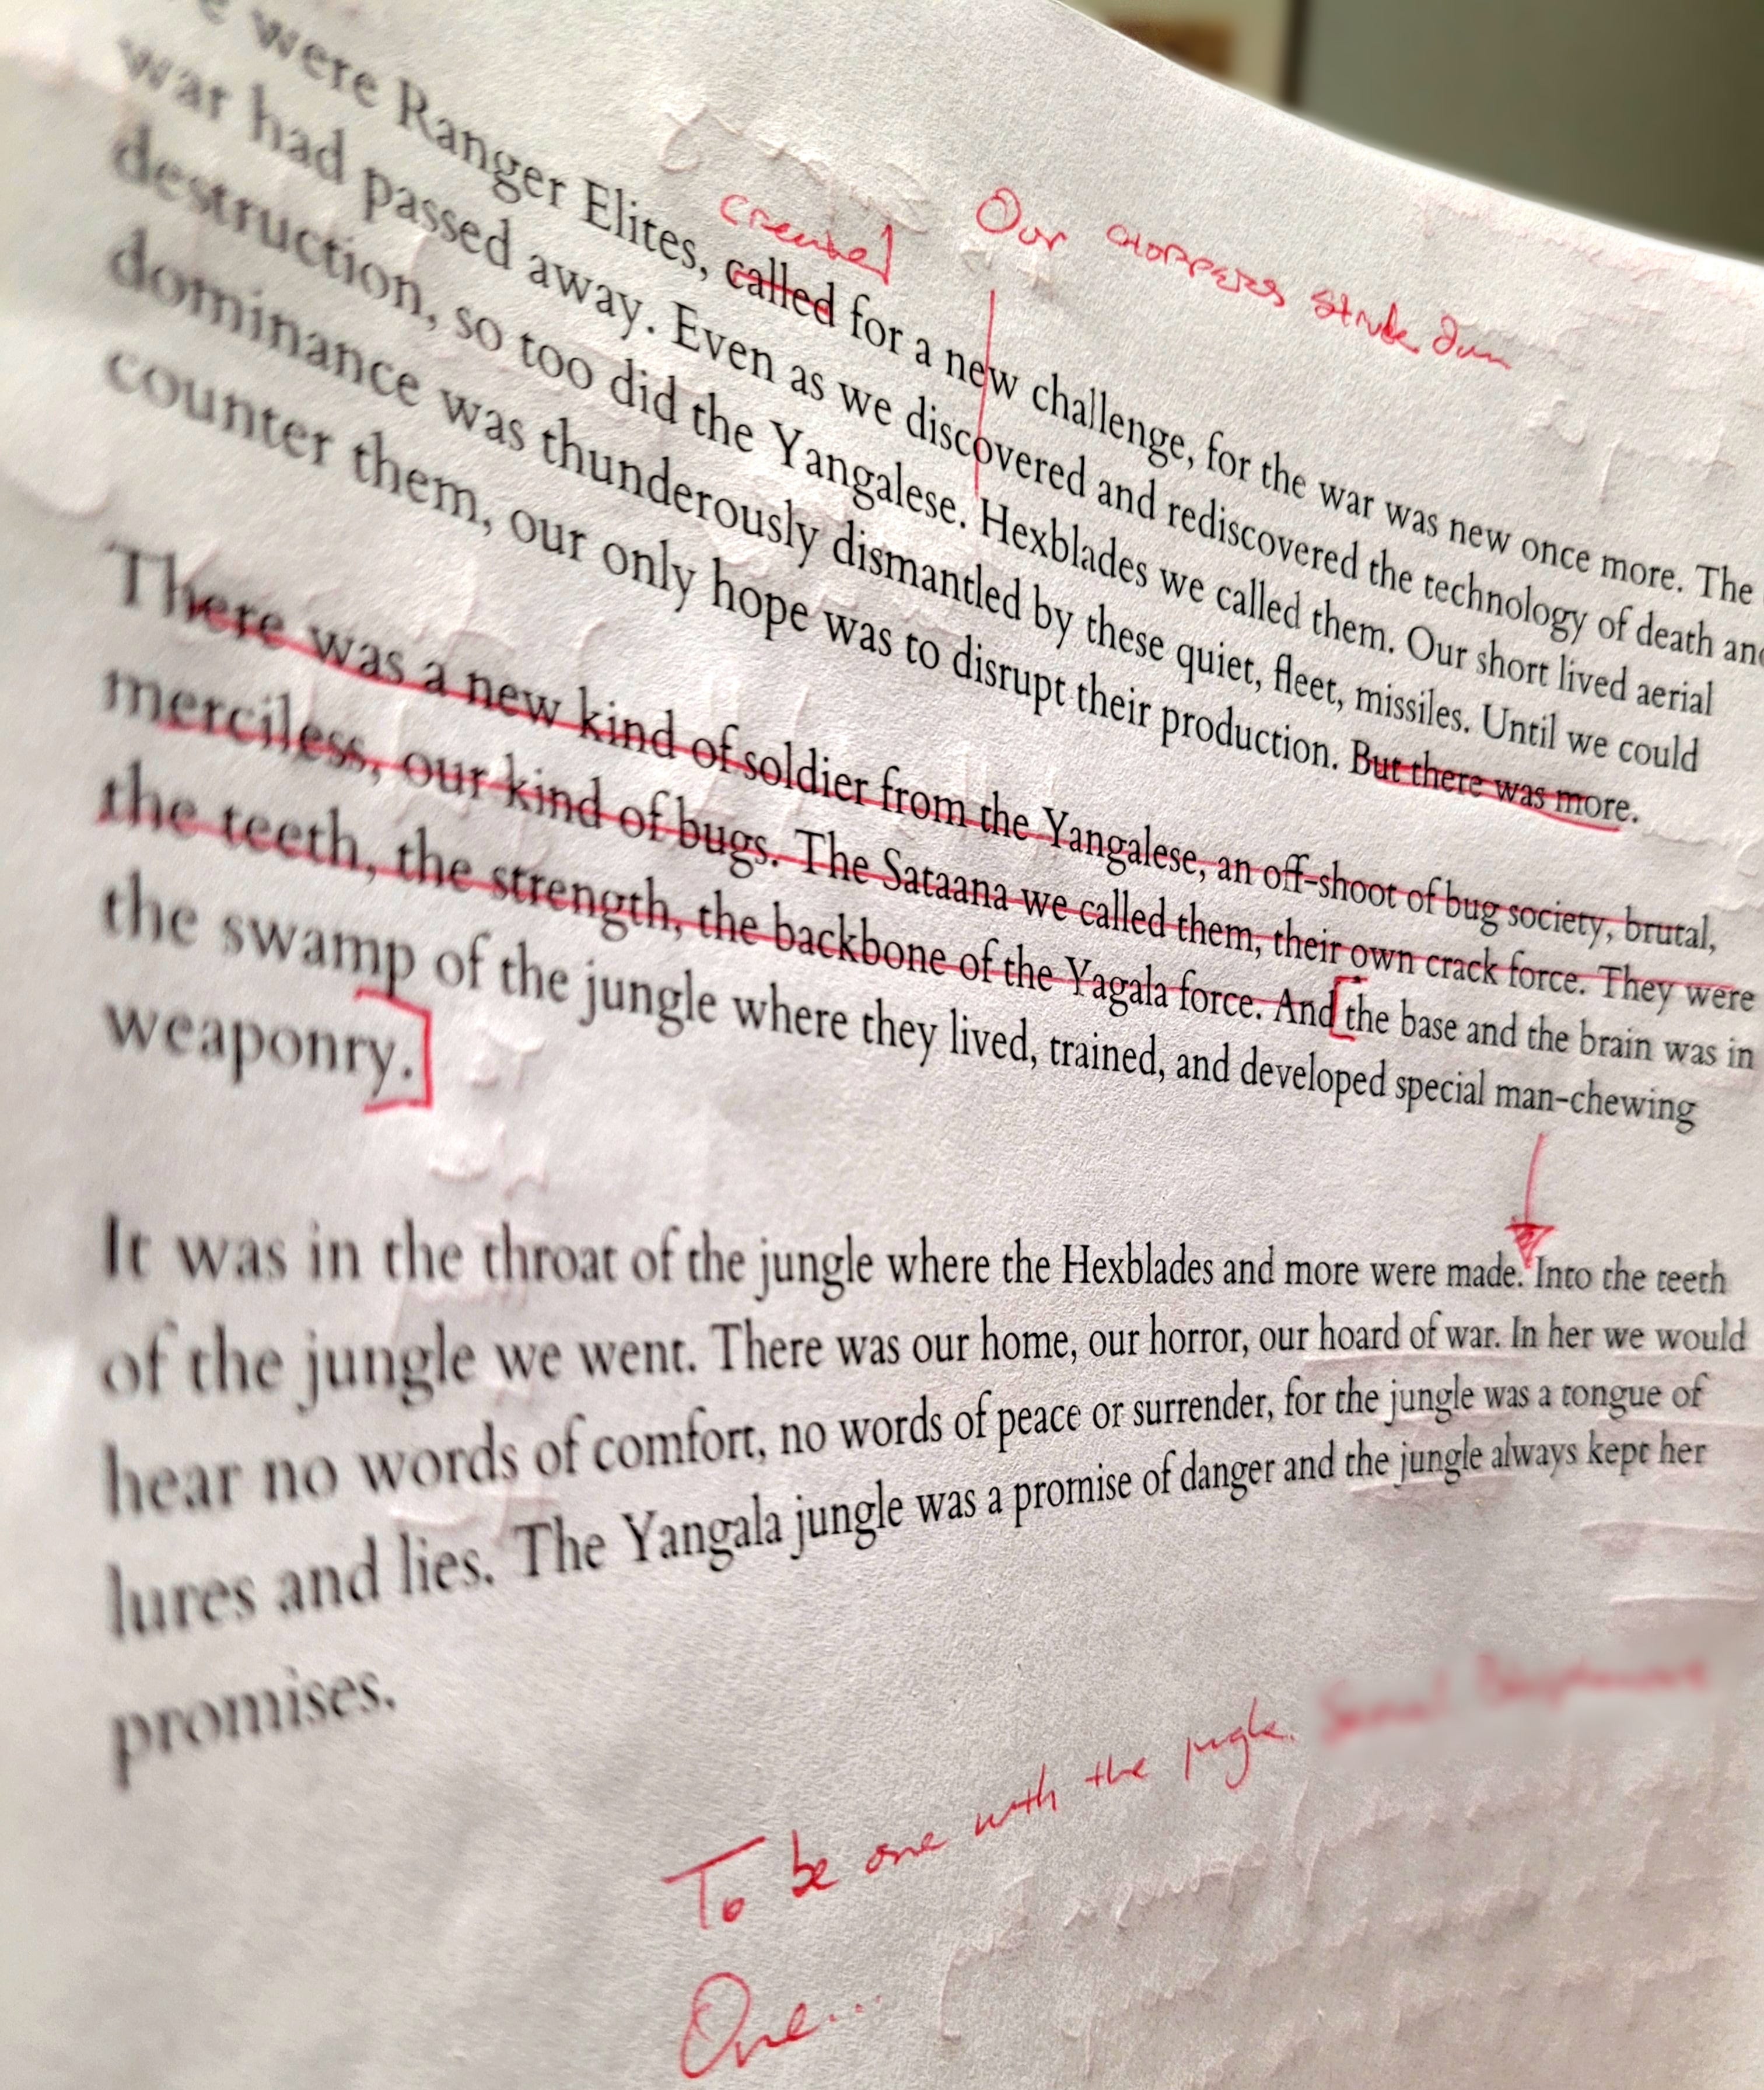 created Our choppers struck down
were Ranger Elites, called for a new challenge, for the war was new once more. The
war had passed away. Even as we discovered and rediscovered the technology of death and
destruction, so too did the Yangalese. Hexblades we called them. Our short lived aerial
dominance was thunderously dismantled by these quiet, fleet, missiles. Until we could
counter them, our only hope was to disrupt their production. But there was more.
There was a new kind of soldier from the Yangalese, an off-shoot of bug society, brutal,
merciless, our kind of bugs. The Sataana we called them, their own crack force. They were
the teeth, the strength, the backbone of the Yagala force. And the base and the brain was in
the swamp of the jungle where they lived, trained, and developed special man-chewing
weaponry.
It was in the throat of the jungle where the Hexblades and more were made. Into the teeth
of the jungle we went. There was our home, our horror, our hoard of war. In her we would
hear no words of comfort, no words of peace or surrender, for the jungle was a tongue of
lures and lies. The Yangala jungle was a promise of danger and the jungle always kept her
promises.
To be one with the jungle.
One...